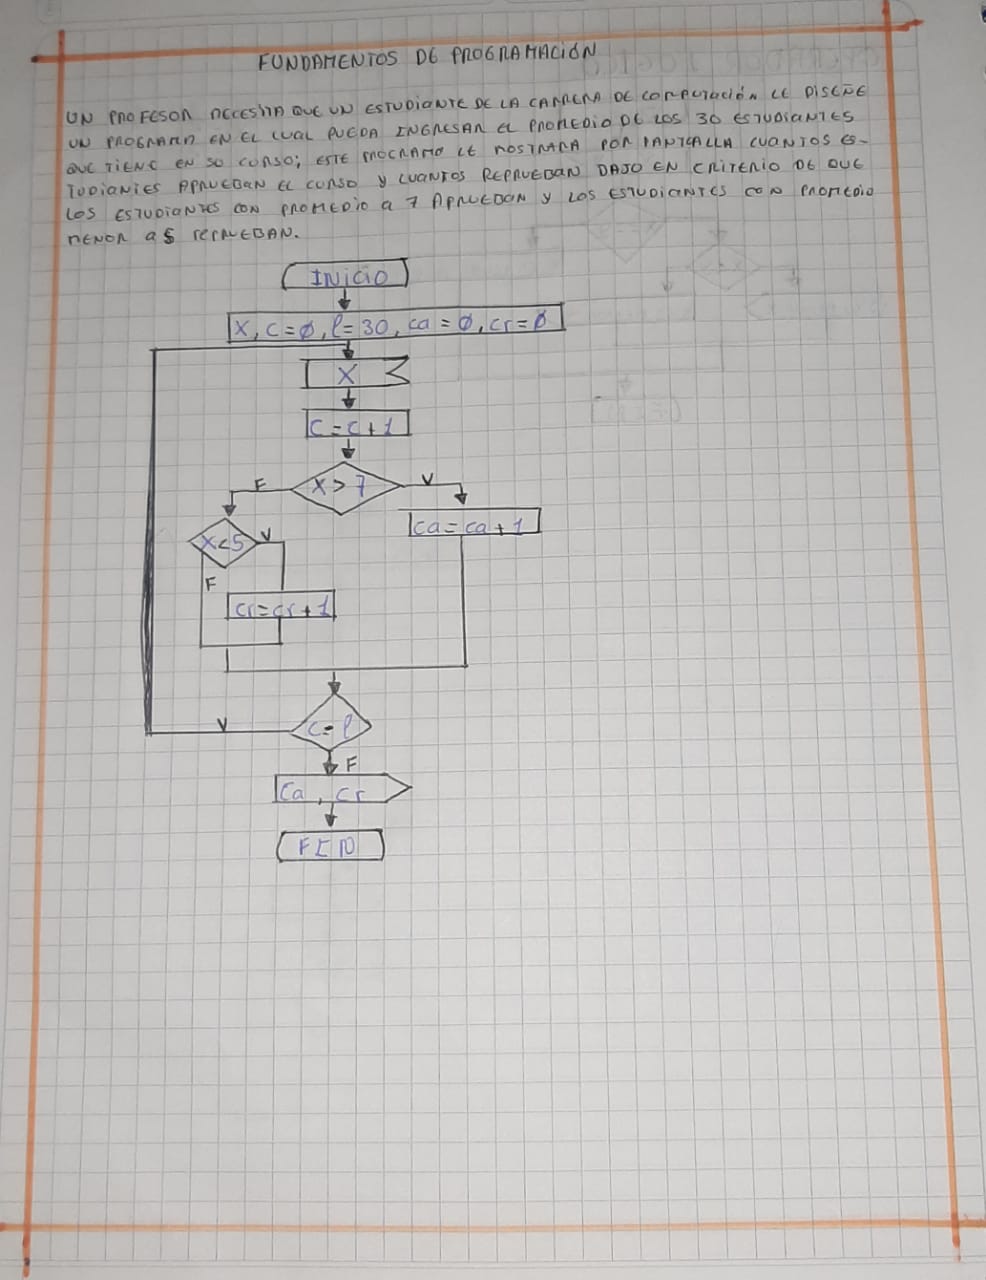 FUNDAMENTOS DE PROGRAMACIÓN
UN PROFESOR NECESITA QUE UN ESTUDIANTE DE LA CARRERA DE COMPUTACIÓN LE DISEÑE
UN PROGRAMA EN EL CUAL PUEDA INGRESAR EL PROMEDIO DE LOS 30 ESTUDIANTES
QUE TIENE EN SU CURSO; ESTE PROGRAMA LE MOSTRARA POR PANTALLA CUANTOS ES-
TUDIANTES APRUEBAN EL CURSO Y CUANTOS REPRUEBAN BAJO EN CRITERIO DE QUE
LOS ESTUDIANTES CON PROMEDIO A 7 APRUEBAN Y LOS ESTUDIANTES CON PROMEDIO
MENOR A 5 REPRUEBAN.
INICIO
X, C=0, l=30, ca=0, cr=0
X
C=C+1
F X>7 V
ca=ca+1
X<5 V
F
cr=cr+1
V C=l
F
Ca, cr
FIN